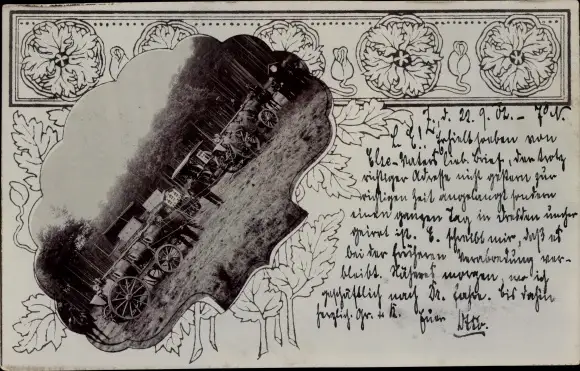 Z. d. 22. 9. 02. – 7° N.
L. E.! Erhielt soeben von
Else-Naters lieb. Brief, der trotz
richtiger Adresse nicht gestern zur
richtigen Zeit angelangt sondern
einen ganzen Tag in Dresden umher
geirrt ist. E. schreibt mir, daß es
bei der früheren Verabredung ver-
bleibt. Näheres morgen, wo ich
geschäftlich nach Dr. komme. Bis dahin
herzlich. Gr. u. K. Euer Otto.